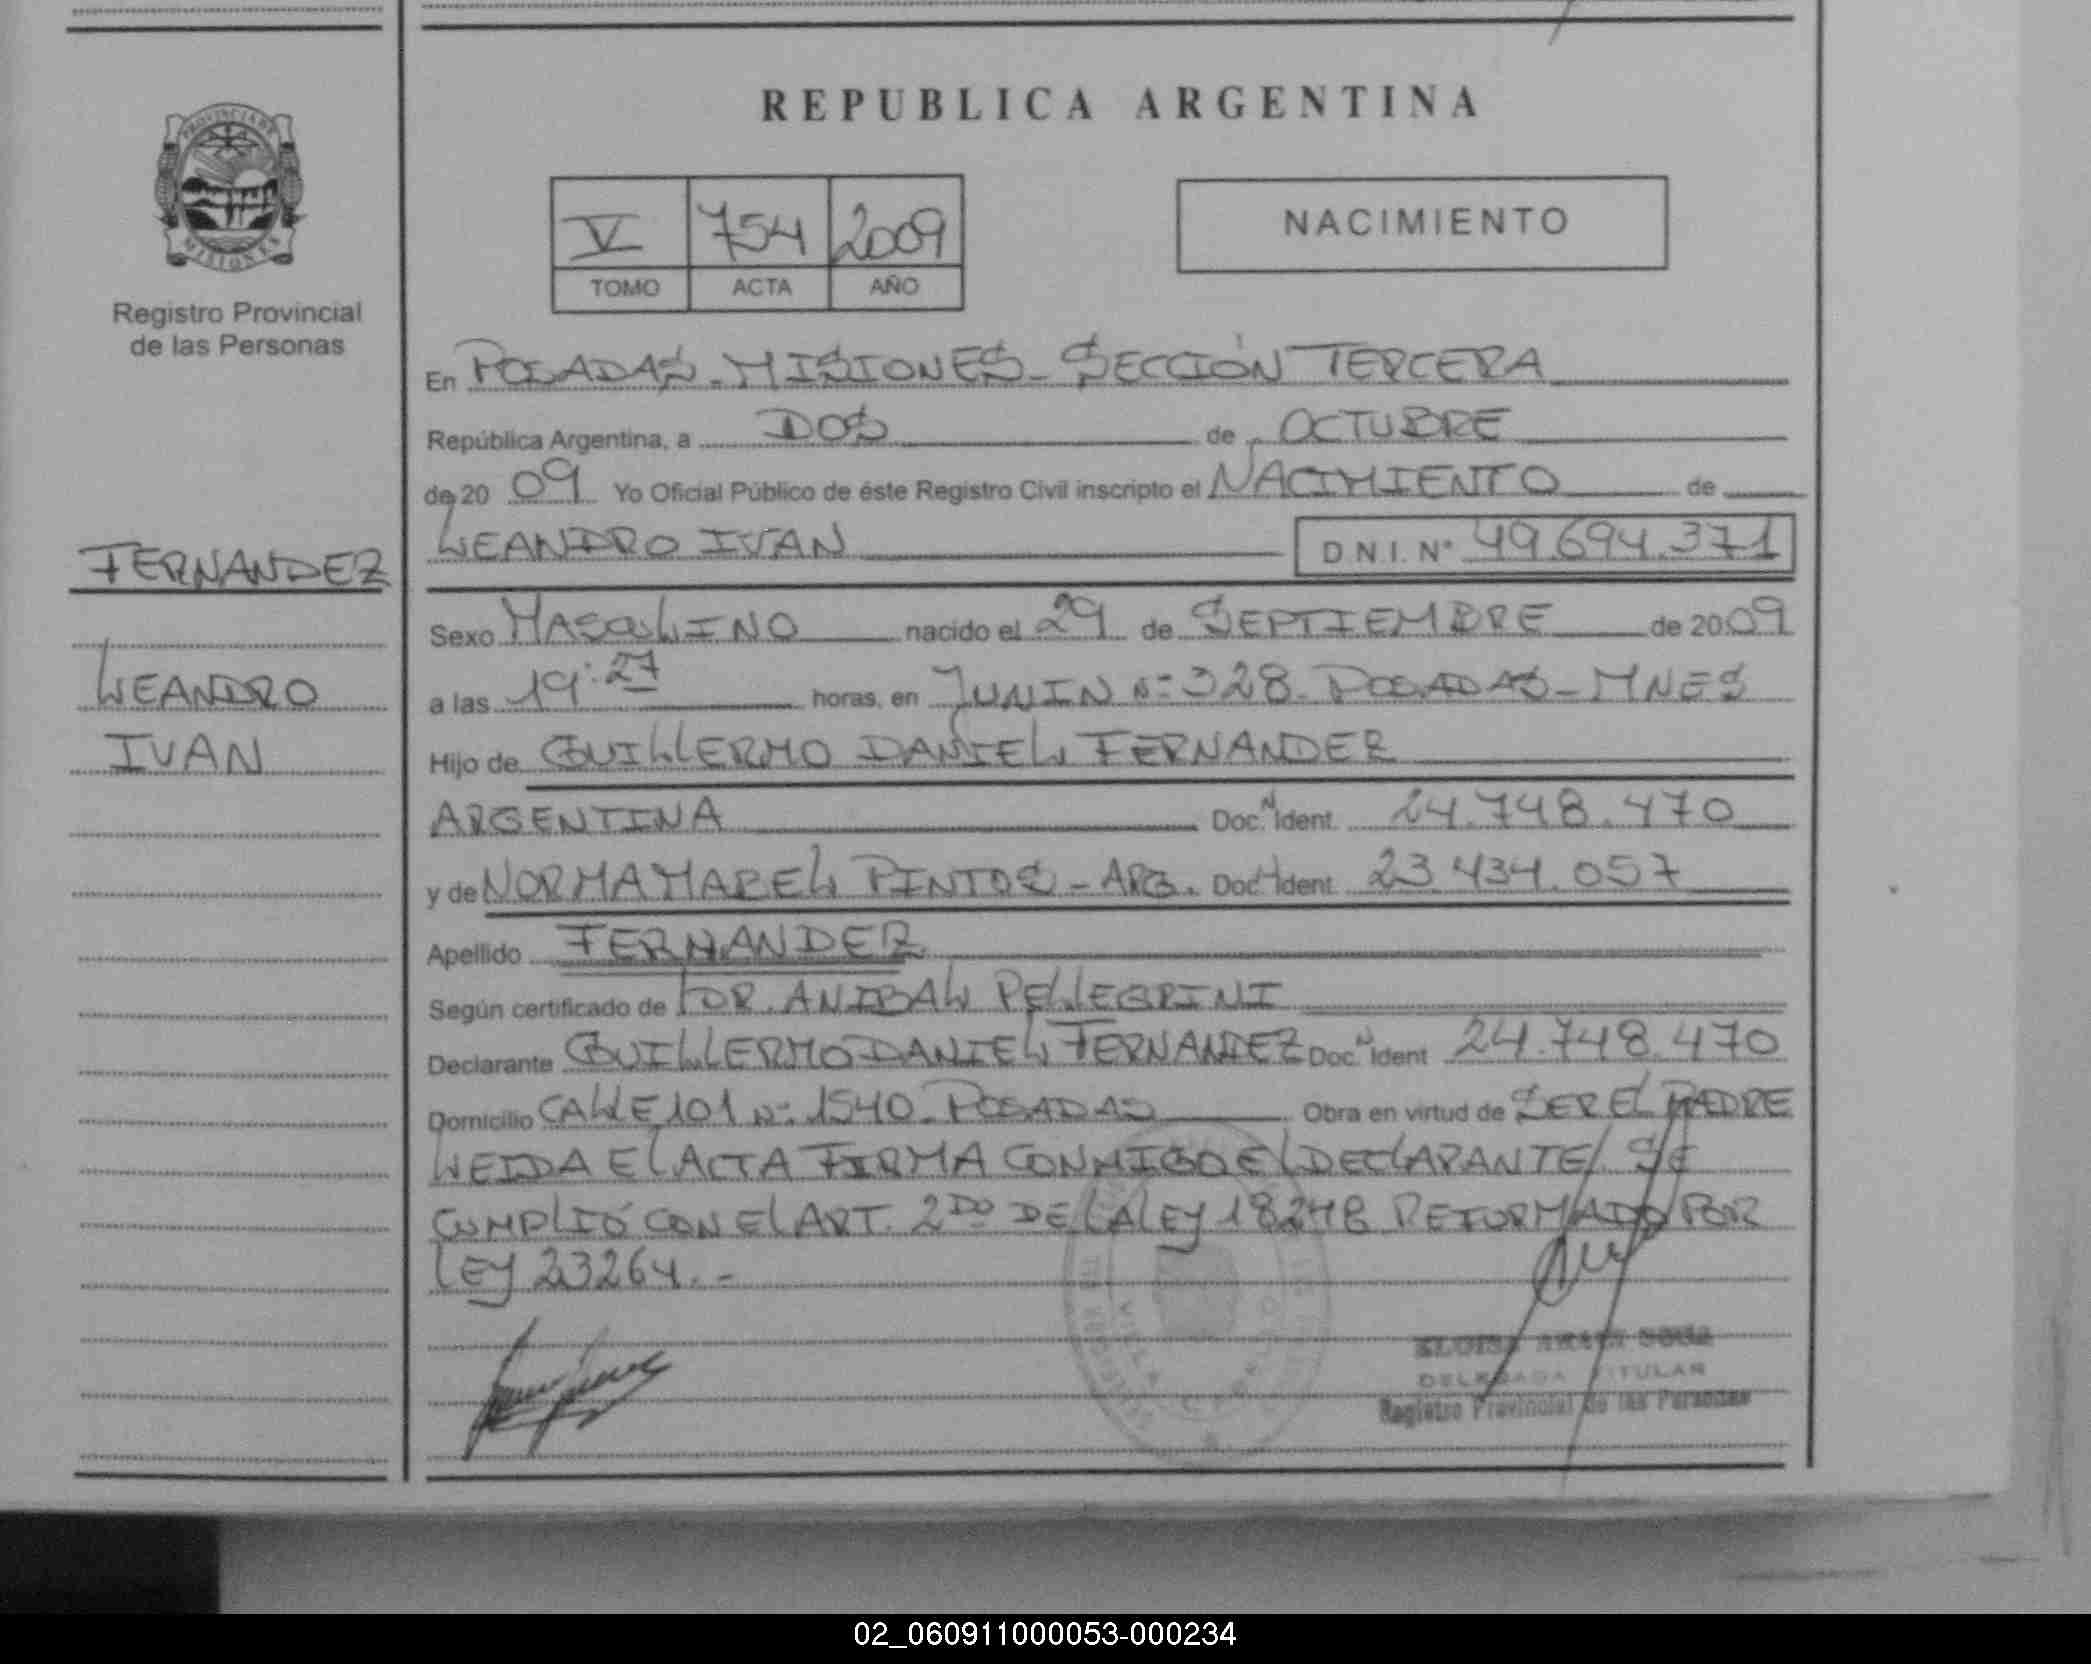 REPUBLICA ARGENTINA
PROVINCIA DE
MISIONES
Registro Provincial
de las Personas
V 754 2009
TOMO ACTA AÑO
NACIMIENTO
En POSADAS - MISIONES - SECCIÓN TERCERA
República Argentina, a DOS de OCTUBRE
de 20 09 Yo Oficial Público de éste Registro Civil inscripto el NACIMIENTO de
LEANDRO IVAN D.N.I. Nº 49.694.371
FERNANDEZ
LEANDRO
IVAN
Sexo MASCULINO nacido el 29 de SEPTIEMBRE de 2009
a las 19:27 horas, en JUNIN Nº 328 - POSADAS - MNES
Hijo de GUILLERMO DANIEL FERNANDEZ
ARGENTINA Doc. N Ident. 24.748.470
y de NORMA MABEL PINTOS - ARG. Doc. N Ident. 23.434.057
Apellido FERNANDEZ
Según certificado de DR. ANIBAL PELLEGRINI
Declarante GUILLERMO DANIEL FERNANDEZ Doc. N Ident 24.748.470
Domicilio CALLE 101 Nº 1540 - POSADAS Obra en virtud de SER EL PADRE
LEIDA EL ACTA FIRMA CONMIGO EL DECLARANTE/ SE
CUMPLIÓ CON EL ART. 2DO DE LA LEY 18248 REFORMADO POR
LEY 23264.-
DELEGADA TITULAR
Registro Provincial de las Personas
02_060911000053-000234